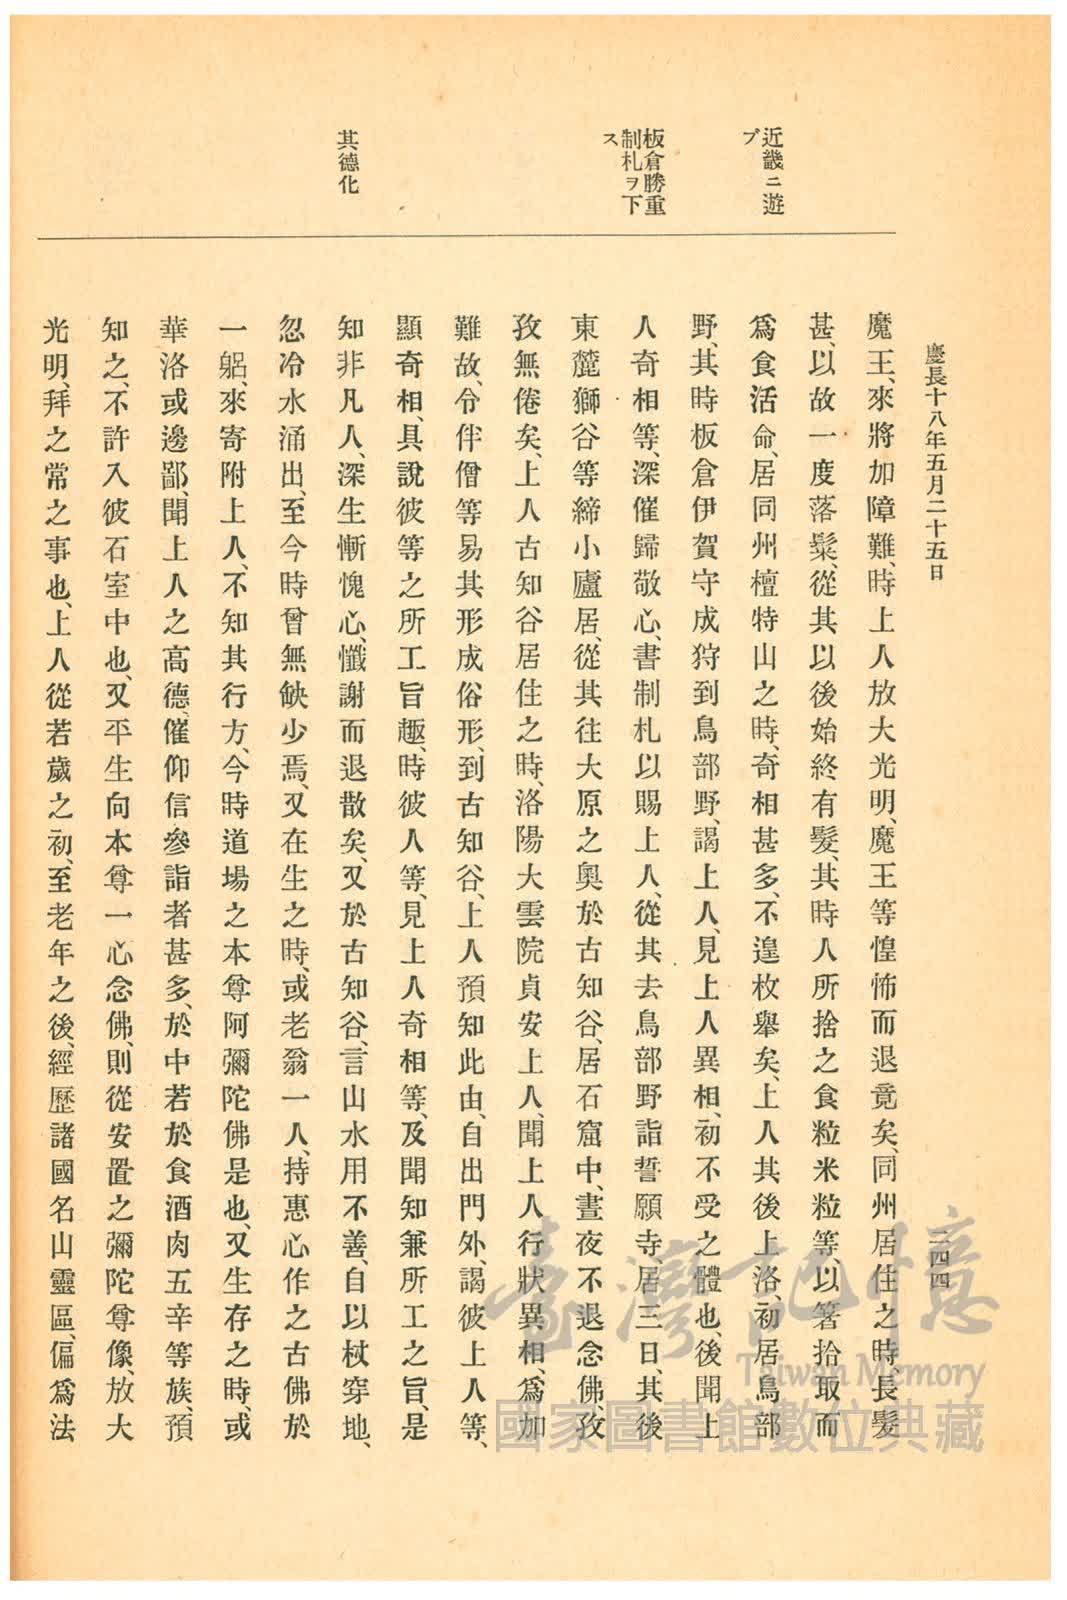 慶長十八年五月二十五日
二四四
近畿ニ遊
ブ
板倉勝重
制札ヲ下
ス
其德化
魔王、來將加障難、時上人放大光明、魔王等惶怖而退竟矣、同州居住之時、長髮
甚、以故一度落髮、從其以後始終有髮、其時人所捨之食粒米粒等、以箸拾取而
爲食活命、居同州檀特山之時、奇相甚多、不遑枚擧矣、上人其後上洛、初居鳥部
野、其時板倉伊賀守成狩到鳥部野、謁上人、見上人異相、初不受之體也、後聞上
人奇相等、深催歸敬心、書制札以賜上人、從其去鳥部野詣誓願寺、居三日、其後
東麓獅谷等締小廬居、從其往大原之奧於古知谷、居石窟中、晝夜不退念佛、孜
孜無倦矣、上人古知谷居住之時、洛陽大雲院貞安上人、聞上人行狀異相、爲加
難故、令伴僧等易其形成俗形、到古知谷、上人預知此由、自出門外、謁彼上人等、
顯奇相、具說彼等之所工旨趣、時彼人等、見上人奇相等、及聞知兼所工之旨、是
知非凡人、深生慚愧心、懺謝而退散矣、又於古知谷、言山水用不善、自以杖穿地、
忽冷水涌出、至今時曾無缺少焉、又在生之時、或老翁一人、持惠心作之古佛於
一躯、來寄附上人、不知其行方、今時道場之本尊阿彌陀佛是也、又生存之時、或
華洛或邊鄙、聞上人之高德、催仰信參詣者甚多、於中若於食酒肉五辛等族、預
知之、不許入彼石室中也、又平生向本尊一心念佛、則從安置之彌陀尊像、放大
光明、拜之常之事也、上人從若歲之初、至老年之後、經歷諸國名山靈區、偏爲法
臺灣記憶
Taiwan Memory
國家圖書館數位典藏